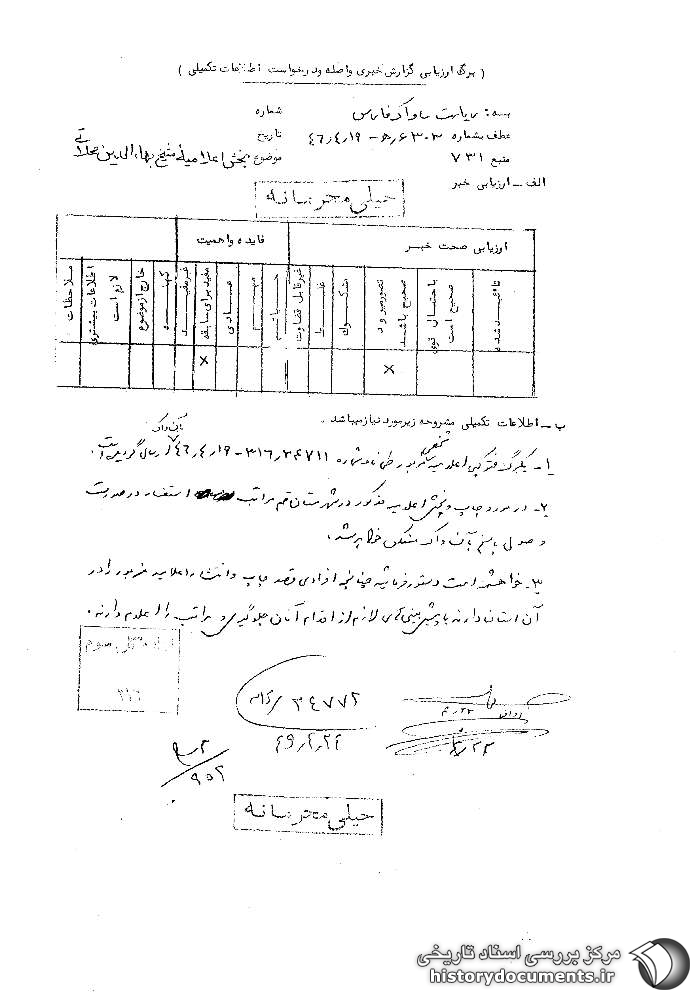 ( برگ ارزیابی گزارش خبری واصله ودرخواست اطلاعات تکمیلی )
به: ریاست ساواک فارس
شماره
عطف بشماره ۶۳۰۳/ه‍ - ۴۶٫۴٫۱۹
تاریخ
منبع ۷۳۱
موضوع پخش اعلامیه شیخ بهاءالدین محلاتی
الف - ارزیابی خبر
خیلی محرمانه
ارزیابی صحت خبر
فایده واهمیت
تائید شده
باحتمال قوی صحیح است
تصورمیرود صحیح باشد
مشکوک
غلط
غیرقابل قضاوت
حساس
مهم
عادی
مفید برای سابقه
غیرمفید
کهنه
خارج ازموضوع
اطلاعات بیشتری لازم است
ملاحظات
×
×
ب - اطلاعات تکمیلی مشروحه زیرمورد نیازمیباشد .
۱- یکبرگ فتوکپی اعلامیه مزبور طی نامه شماره ۳۱۶٫۳۴۷۱۱ - ۴۶٫۴٫۱۹ بآن ساواک ارسال گردیده است .
۲- در مورد چاپ و پخش اعلامیه مذکور در شهرستان قم مراتب استفسار در صورت
وصول پاسخ بآن ساواک منعکس خواهد شد .
۳- خواهشمند است دستور فرمائید چنانچه افرادی قصد چاپ و انتشار اعلامیه مزبور را در
آن استان دارند با پیش بینی های لازم از اقدام آنان جلوگیری و مراتب را اعلام دارند .
اداره کل سوم
۳۱۶
۳۱۶/ ۳۴۷۷۲
۴۶٫۴٫۲۴
۴٫۲۲
۴٫۲۳
۹۵۲
خیلی محرمانه
مرکز بررسی اسناد تاریخی
historydocuments.ir